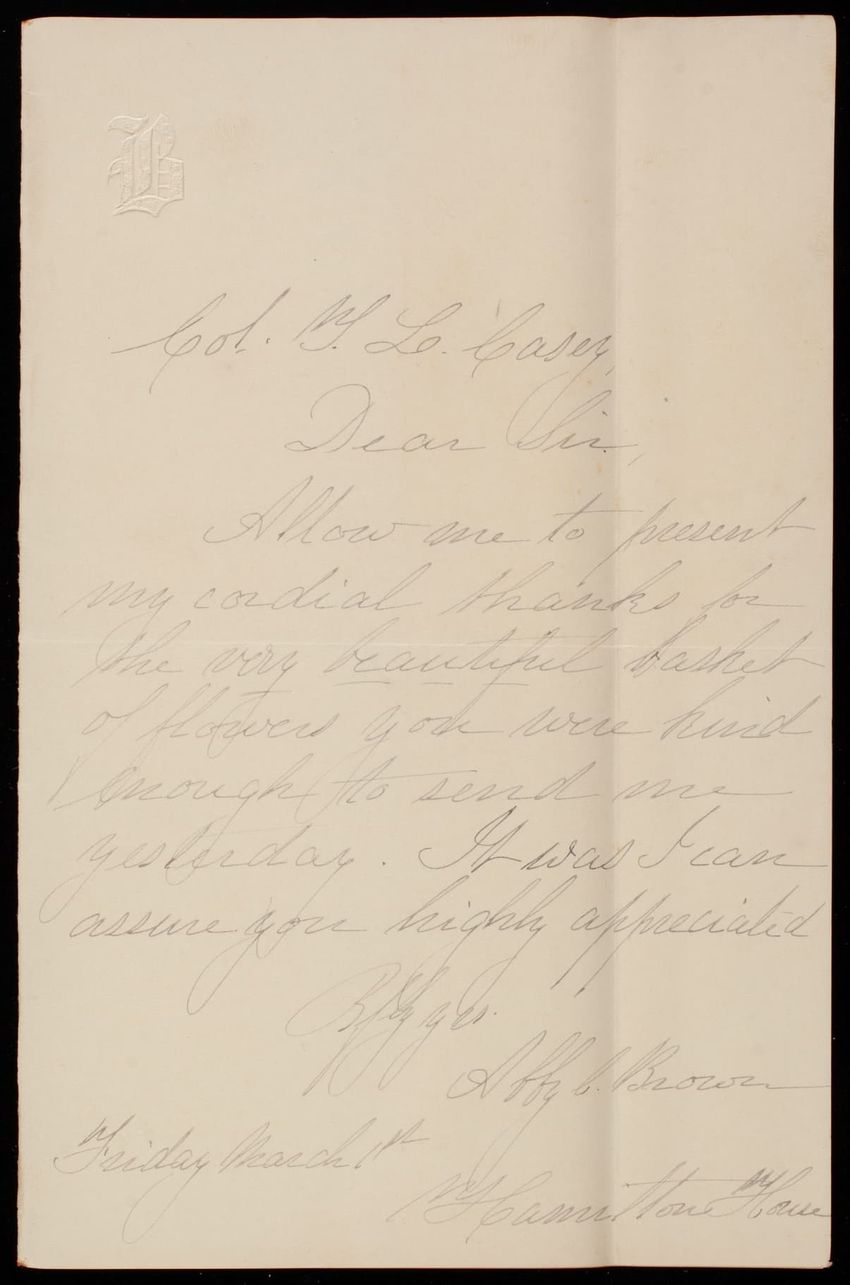 B
Col. T. L. Casey,
Dear Sir,
Allow me to present
my cordial thanks for
the very beautiful basket
of flowers you were kind
enough to send me
yesterday. It was I can
assure you highly appreciated
Rsfy yrs.
Abby C. Brown
Friday March 1st
Hamilton House